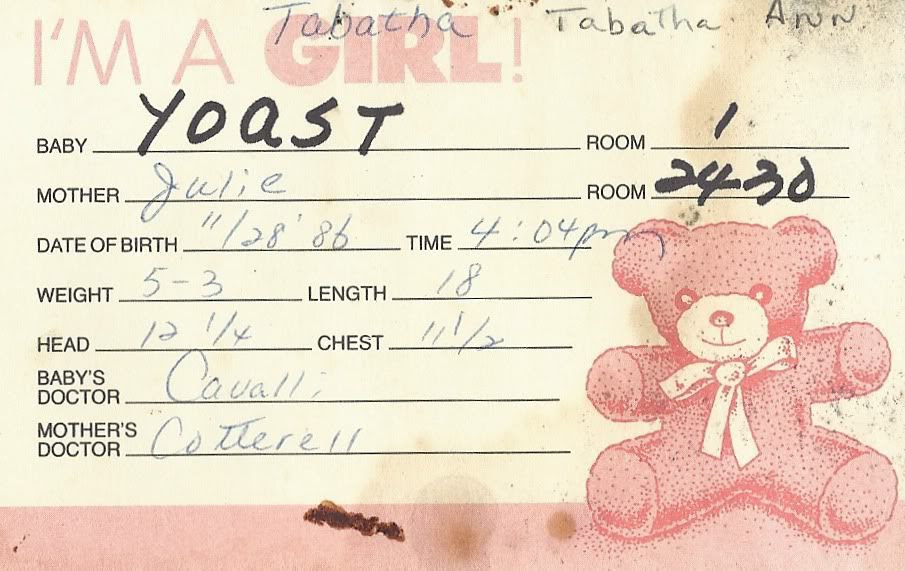 Tabatha Tabatha Ann
I'M A GIRL!
BABY YOAST ROOM 1
MOTHER Julie ROOM 2430
DATE OF BIRTH 11/28'86 TIME 4:04pm
WEIGHT 5-3 LENGTH 18
HEAD 12 1/4 CHEST 11 1/2
BABY'S
DOCTOR Cavalli
MOTHER'S
DOCTOR Cotterell